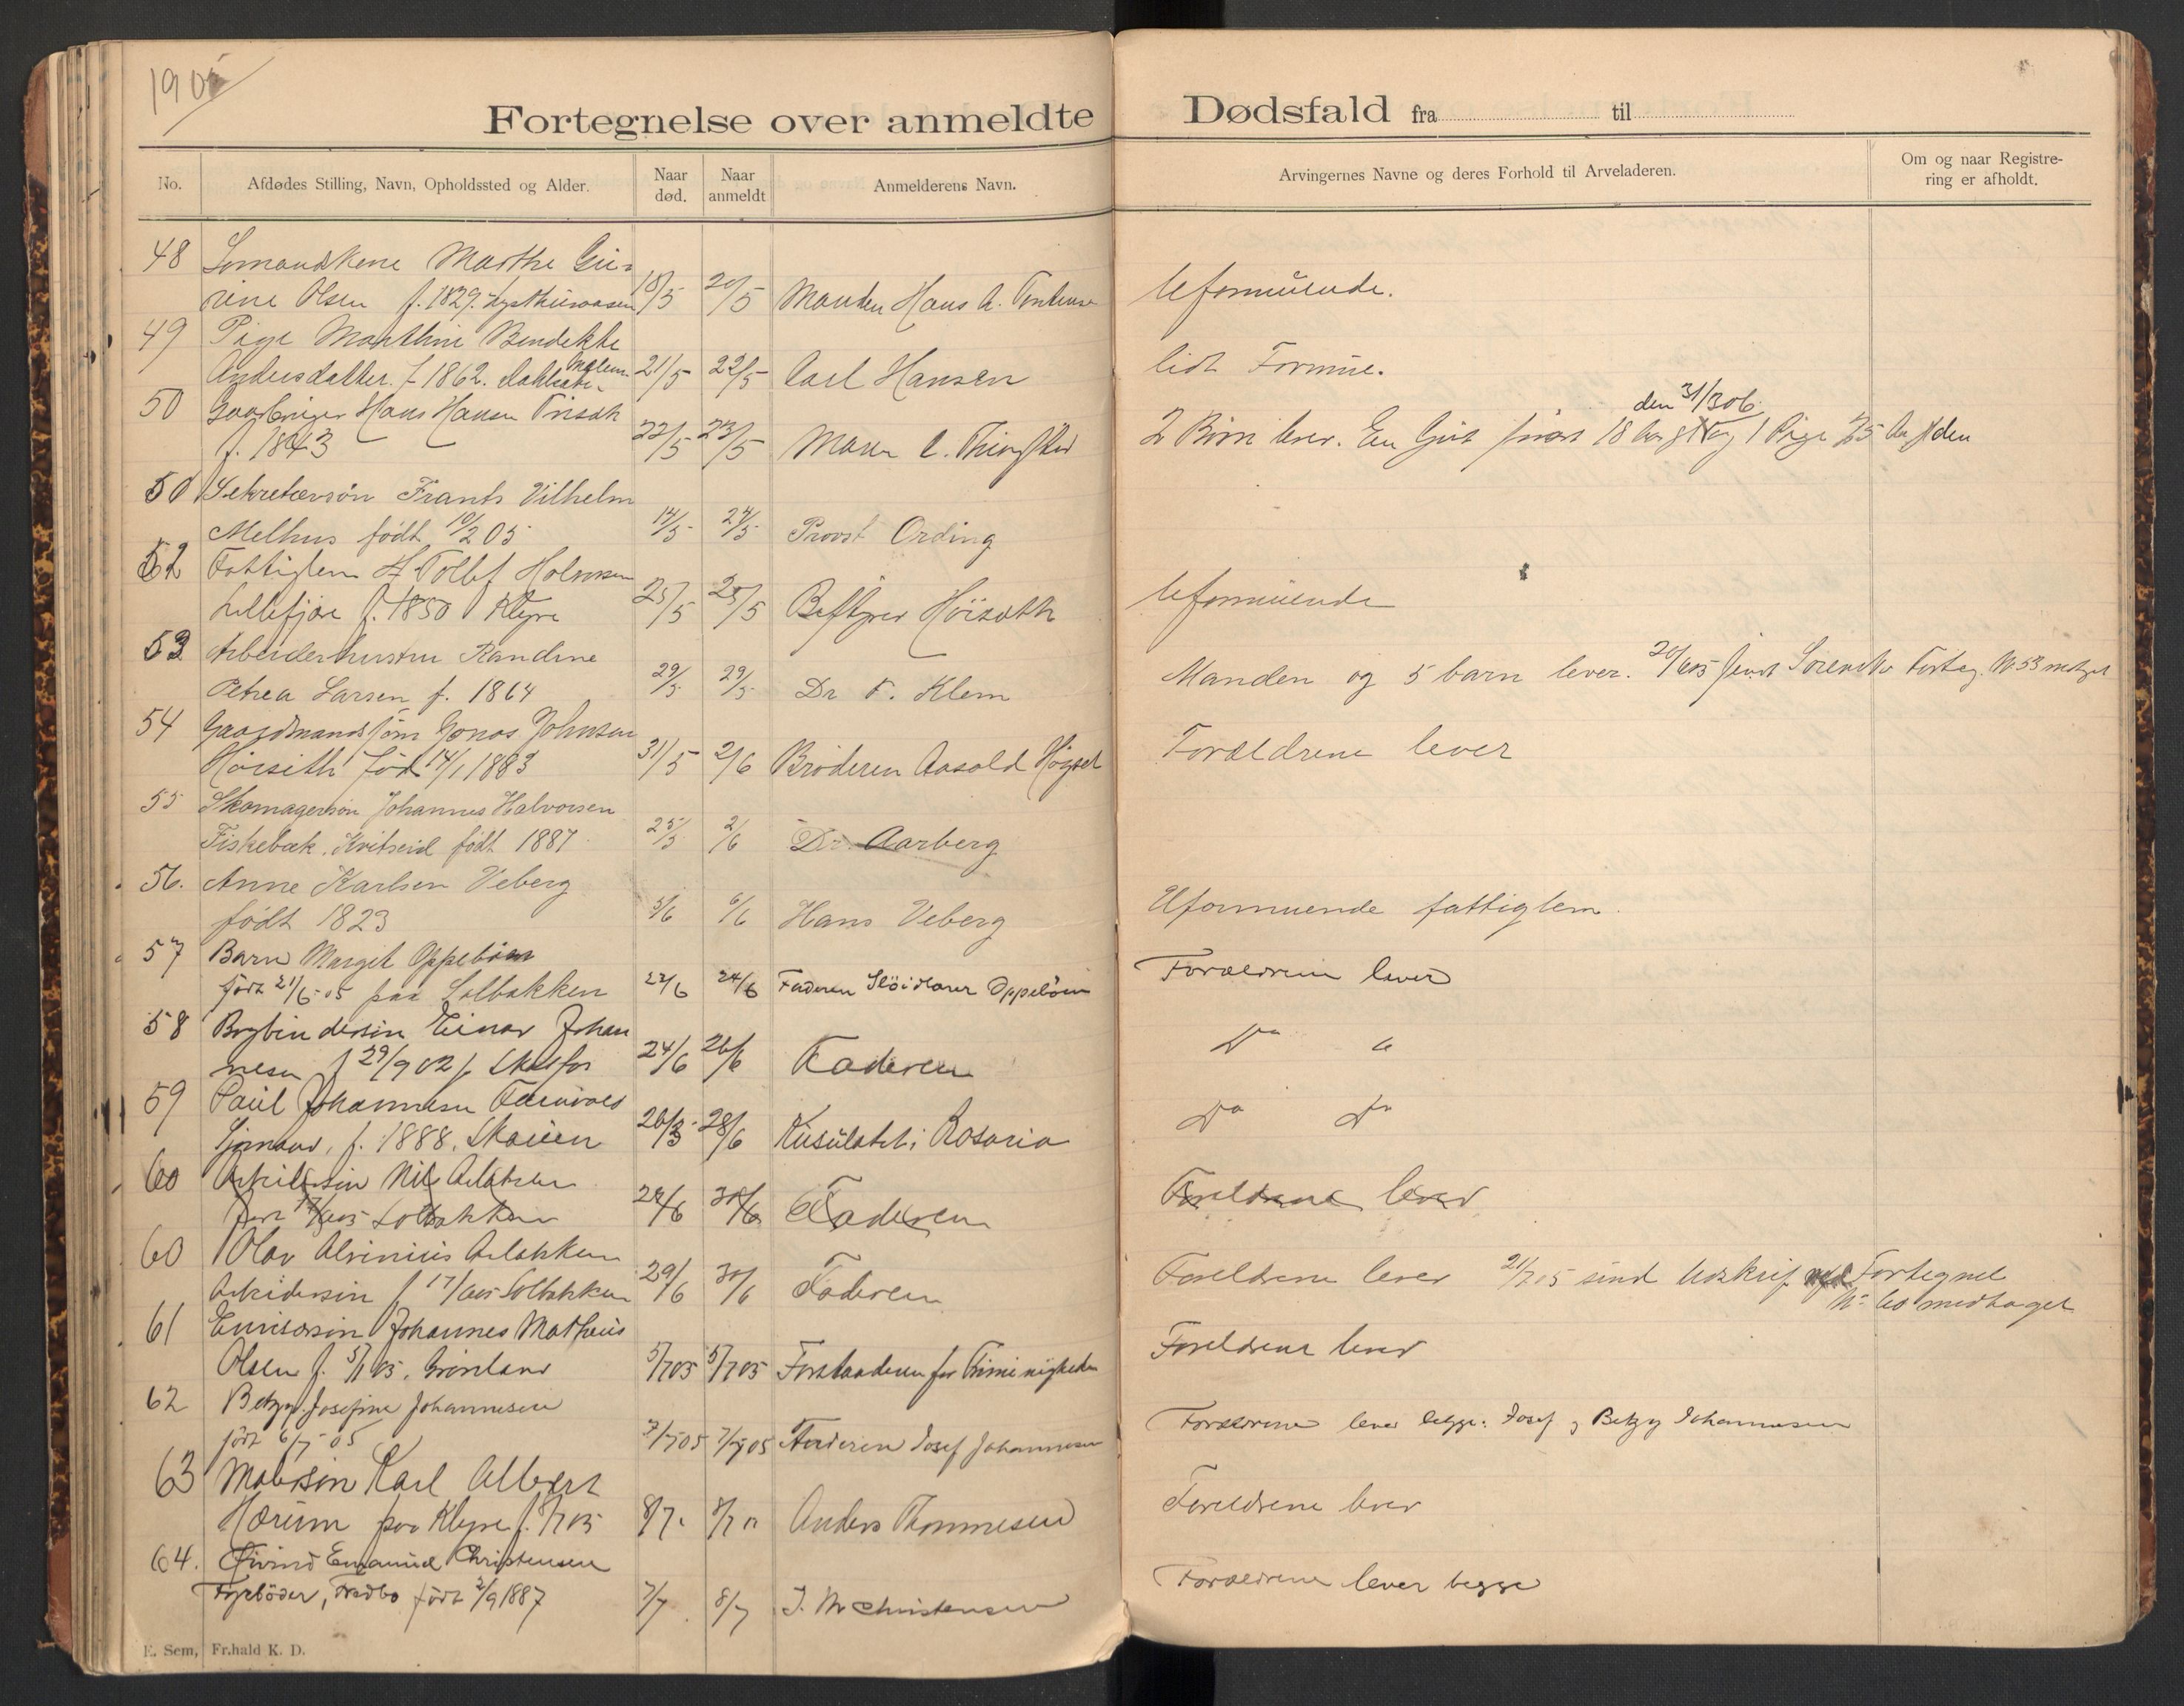 1905
Fortegnelse over anmeldte Dødsfald fra til
No.
Afdødes Stilling, Navn, Opholdssted og Alder.
Naar død.
Naar anmeldt
Anmelderens Navn.
Arvingernes Navne og deres Forhold til Arveladeren.
Om og naar Registre-
ring er afholdt.
48 Marthe Gu-
rine Olsen f. 1829. 18/5 20/5 Manden Hans A. Uformuende.
49 Pige Marthine Bendekte
Andersdatter. f 1862. 21/5 22/5 Carl Hansen lidt Formue.
50 Hans Hansen den 31/3 06
f. 1843 22/5 23/5 2 Børn lever. En Gut 18 Aar 1 Pige
51 Sekretærsøn Frants Vilhelm
Melhus født 10/2 05 14/5 24/5 Provst Ording
52 Fattiglem Tollef Halvorsen
Lillefjære f. 1850 Klyve 25/5 25/5 Høisæth Uformuende
53 Arbeiderhustru Randine
Petrea Larsen f. 1864 29/5 29/5 Dr F. Klem Manden og 5 barn lever. 20/6 05 No. 53
54 Gaardmandssøn Jonas Johnsen
Høiseth født 14/1 1883 31/5 2/6 Broderen Aasold Høgset Forældrene lever
55 Skomagersøn Johannes Halvorsen
Fiskebæk. Kvitseid født 1887 25/5 2/6 Dr. Aarberg
56. Anne Karlsen Veberg
født 1823 5/6 6/6 Hans Veberg Uformuende fattiglem.
57 Barn Margit Oppebøen
født 21/6 05 paa Solbakken 22/6 24/6 Faderen Oppebøen Forældrene lever
58 Bogbindersøn Einar Johan
nesen f 29/9 02 24/6 26/6 Faderen Do "
59 Paul Johannesen
Sjømand, f. 1888. 28/6 Rosario Do Do
60 Arbeidersøn
Solbakken 30/6 Faderen Foreldrene lever
60 Olav Alvinius
Arbeidersøn f 17/6 05 Solbakken 29/6 30/6 Faderen Foreldrene lever 21/7 05 send Udskrif Fortegnel
No 60 medtaget
61 Johannes Matheus
Olsen f. 5/7 05. Grønland 5/7 05 5/7 05 Forstanderen for Foreldrene lever
62 Betzy Josefine Johannesen
født 6/7 05 7/7 05 7/7 05 Faderen Josef Johannesen Forældrene lever begge. Josef og Betzy Johannesen
63 Malersøn Karl Albert
Hærum paa Klyve f. 8/7 05 8/7 Anders Thommesen Foreldrene lever
64. Øivind Emanuel Christensen
Fyrbøder, født 2/9 1887 7/7 8/7 J. M Christensen Forældrene lever begge
E. Sem, Fr.hald K. D.